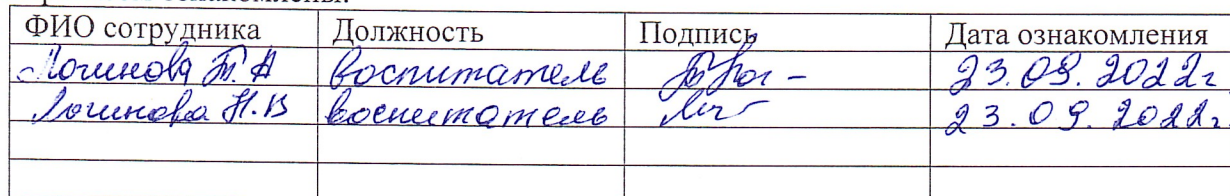 ознакомлены:
ФИО сотрудника Должность Подпись Дата ознакомления
Логинова Т. А воспитатель 23.09.2022г
Логинова Н.В воспитатель 23.09.2022г